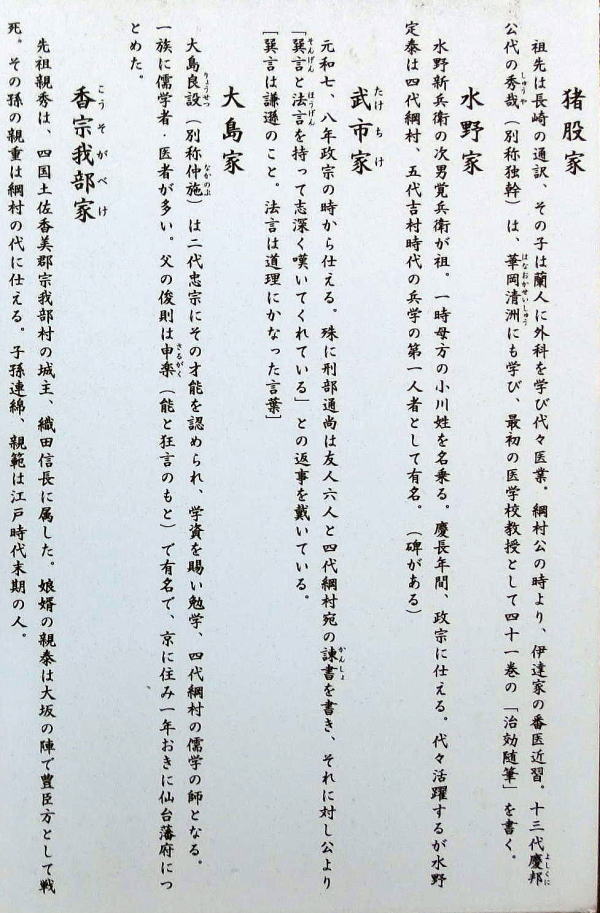 猪股家
祖先は長崎の通訳、その子は蘭人に外科を学び代々医業。綱村公の時より、伊達家の番医近習。十三代慶邦
公代の秀哉(別称独幹)は、華岡清洲にも学び、最初の医学校教授として四十一巻の「治効随筆」を書く。
水野家
水野新兵衛の次男覚兵衛が祖。一時母方の小川姓を名乗る。慶長年間、政宗に仕える。代々活躍するが水野
定泰は四代綱村、五代吉村時代の兵学の第一人者として有名。(碑がある)
武市家
元和七、八年政宗の時から仕える。殊に刑部通尚は友人六人と四代綱村宛の諌書を書き、それに対し公より
「巽言と法言を持って志深く嘆いてくれている」との返事を戴いている。
[巽言は謙遜のこと。法言は道理にかなった言葉]
大島家
大島良設(別称仲施)は二代忠宗にその才能を認められ、学資を賜い勉学、四代綱村の儒学の師となる。
一族に儒学者・医者が多い。父の俊則は申楽(能と狂言のもと)で有名で、京に住み一年おきに仙台藩府につ
とめた。
香宗我部家
先祖親秀は、四国土佐香美郡宗我部村の城主、織田信長に属した。娘婿の親泰は大坂の陣で豊臣方として戦
死。その孫の親重は綱村の代に仕える。子孫連綿、親範は江戸時代末期の人。